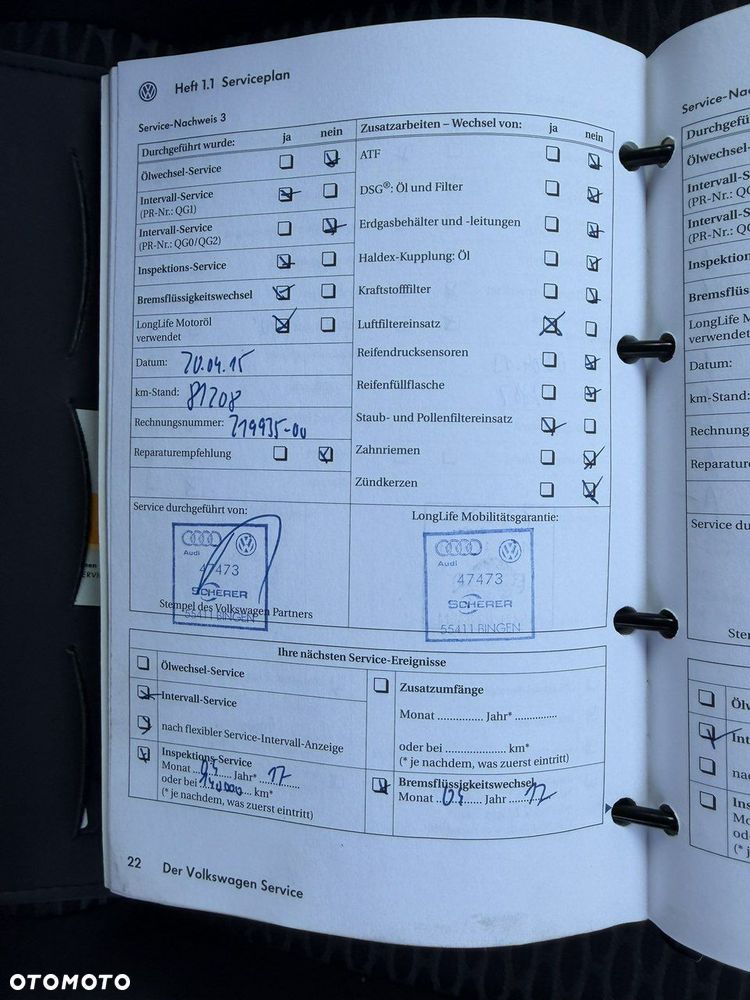 Heft 1.1 Serviceplan
Service-Nachweis 3
Durchgeführt wurde: ja nein
Ölwechsel-Service
Intervall-Service
(PR-Nr.: QG1)
Intervall-Service
(PR-Nr.: QG0/QG2)
Inspektions-Service
Bremsflüssigkeitswechsel
LongLife Motoröl
verwendet
Datum: 20.04.15
km-Stand: 81208
Rechnungsnummer: 219935-00
Reparaturempfehlung
Zusatzarbeiten – Wechsel von: ja nein
ATF
DSG®: Öl und Filter
Erdgasbehälter und -leitungen
Haldex-Kupplung: Öl
Kraftstofffilter
Luftfiltereinsatz
Reifendrucksensoren
Reifenfüllflasche
Staub- und Pollenfiltereinsatz
Zahnriemen
Zündkerzen
Service durchgeführt von:
Audi
47473
SCHERER
55411 BINGEN
Stempel des Volkswagen Partners
LongLife Mobilitätsgarantie:
Audi
47473
SCHERER
55411 BINGEN
Ihre nächsten Service-Ereignisse
Ölwechsel-Service
Intervall-Service
nach flexibler Service-Intervall-Anzeige
Inspektions-Service
Monat 04 Jahr* 17
oder bei 140000 km*
(* je nachdem, was zuerst eintritt)
Zusatzumfänge
Monat ............... Jahr* ..............
oder bei .................... km*
(* je nachdem, was zuerst eintritt)
Bremsflüssigkeitswechsel
Monat 04 Jahr 17
22 Der Volkswagen Service
Service-Na
Durchgefü
Ölwechsel-
Intervall-S
(PR-Nr.: QG
Intervall-S
(PR-Nr.: QG
Inspektion
Bremsflüs
LongLife M
verwendet
Datum:
km-Stand:
Rechnung
Reparatur
Service du
Ster
Öl
Int
na
Ins
Mo
od
(* j
OTOMOTO